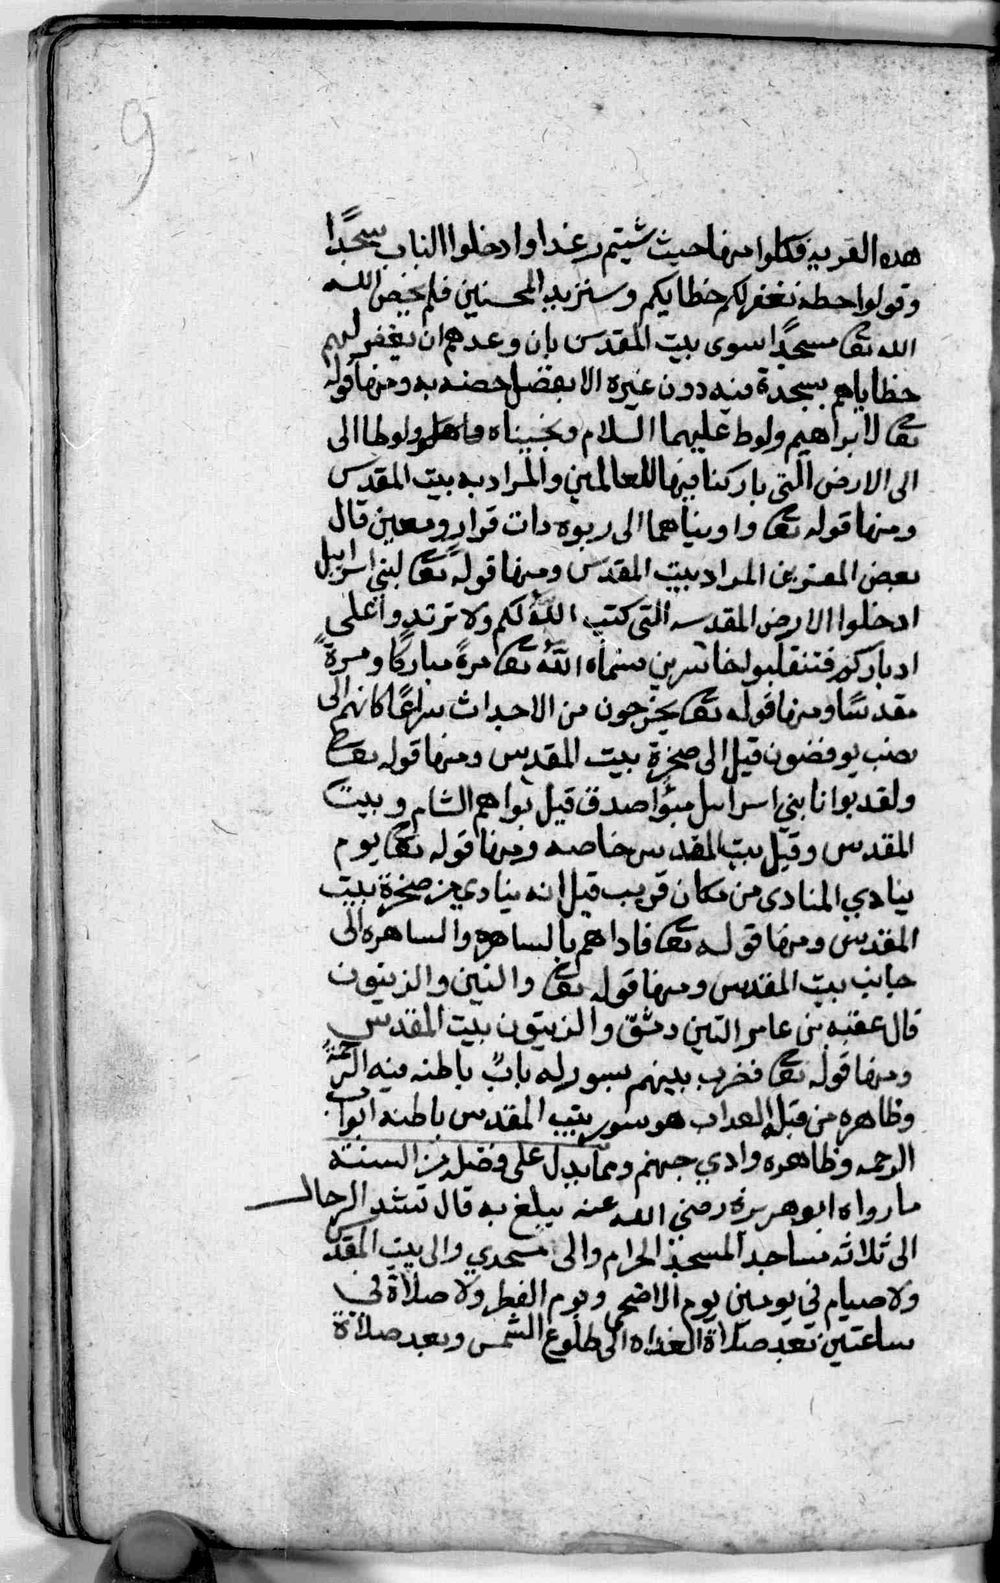 9
هذه القرية فكلوا منها حيث شيتم رغدا وادخلوا الباب سجدًا
وقولوا حطه نغفر لكم خطاياكم وسنزيد المحسنين فلم يخص الله
الله تعا مسجدًا سوى بيت المقدس بان وعدهم ان يغفر لهم
خطاياهم بسجدة فيه دون غيره الا بفضل خصه به ومنها قوله
تعا لابراهيم ولوط عليهما السلام ونجيناه ولوطا الى
الى الارض التى باركنا فيها للعالمين والمراد به بيت المقدس
ومنها قوله تعا واويناهما الى ربوه ذات قرار ومعين قال
بعض المفسرين المراد بيت المقدس ومنها قوله تعا لبني اسراييل
ادخلوا الارض المقدسه التى كتب الله لكم ولا ترتدوا على
ادباركم فتنقلبوا خاسرين سماه الله تعا مرةً مباركًا ومرةً
مقدسًا ومنها قوله تعا يخرجون من الاجداث سراعًا كانهم الى
نصب يوفضون قيل الى صخرة بيت المقدس ومنها قوله تعا
ولقد بوانا بني اسرايل مبوأ صدق قيل بواهم الشام وبيت
المقدس وقيل بيت المقدس خاصه ومنها قوله تعا يوم
ينادي المنادى من مكان قريب قيل انه ينادي من صخرة بيت
المقدس ومنها قوله تعا فاذا هم بالساهره والساهره الى
جانب بيت المقدس ومنها قوله تعا والتين والزيتون
قال عقبه بن عامر التين دمشق والزيتون بيت المقدس
ومنها قوله تعا فضرب بينهم بسور له بابٌ باطنه فيه الرحمة
وظاهره من قبله العذاب هو سور بيت المقدس باطنه ابواب
الرحمه وظاهره وادي جهنم ومما يدل على فضله من السنة
ما رواه ابو هريرة رضي الله عنه يبلغ به قال تشد الرحال
الى ثلاثه مساجد المسجد الحرام والى مسجدي والى بيت المقدس
ولا صيام في يومين يوم الاضحى ويوم الفطر ولا صلاة في
ساعتين بعد صلاة الغداه الى طلوع الشمس وبعد صلاة